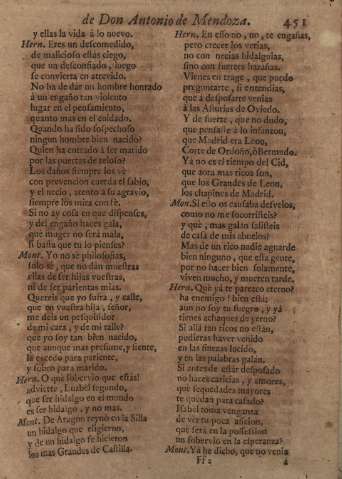 de Don Antonio de Mendoza. 451
y ellas la vida à lo nuevo.
Hern. Eres un descomedido,
de malicioso estàs ciego,
que un desconfiado, luego
se convierta en atrevido.
No ha de dàr un hombre honrado
à un engaño tan violento
lugar en el pensamiento,
quanto mas en el cuidado.
Quando ha sido sospechoso
ningun hombre bien nacido?
Quien ha entrado à ser marido
por las puertas de zeloso?
Los daños siempre los vè
con prevencion cuerda el sabio,
y el necio, atento à su agravio,
siempre los mira con fè.
Si no ay cosa en que dispenses,
y del engaño haces gala,
que muger no serà mala,
si basta que tu lo pienses?
Mont. Yo no sè philosophias,
solo sè, que no dàn muestras
ellas de ser hijas vuestras,
ni de ser parientas mias.
Quereis que yo sufra, y calle,
que en vuestra hija, señor,
me deis un despossedor
de mi cara, y de mi talle?
que yo soy tan bien nacido,
que aunque mas presume, y siente,
le excedo para pariente,
y subro para marido.
Hern. O què sobervio que estàs!
advierte, Isabèl segundo,
que ser hidalgo en el mundo
es ser hidalgo, y no mas.
Mont. De Aragon reynò en la Silla
un hidalgo que eligieron,
y de un hidalgo se hicieron
los mas Grandes de Castilla.
Hern. En esso no, no, te engañas,
pero crecer los verias,
no con necias hidalguias,
sino con fuertes hazañas.
Vienes en trage, que puedo
preguntarte, si entendias,
que à desposarte venias
à las Asturias de Oviedo.
Y de suerte, que no dudo,
que pensaste à lo infanzon,
que Madrid era Leon,
Corte de Ordoño, ò Bermudo.
Ya no es el tiempo del Cid,
que aora mas ricos son,
que los Grandes de Leon,
los chapines de Madrid.
Mont. Si ello os causaba desvelos,
como no me socorristeis?
y què, mas galàn salisteis
de casa de mis abuelos?
Mas de un rico nadie aguarde
bien ninguno, que esta gente,
por no hacer bien solamente,
viven mucho, y mueren tarde.
Hern. Què yà te parezco eterno?
ha enemigo! bien està:
aun no soy tu suegro, y yà
tienes achaques de yerno?
Si allà tan ricos no estàn,
pudieras haver venido
en las finezas lucido,
y en las palabras galàn.
Si antes de estàr desposado
no haces caricias, y amores,
que sequedades mayores
te quedan para casado?
Isabèl toma venganza
de vèr tu poca aficion,
què serà en la possession
un sobervio en la esperanza?
Mont. Yà he dicho, que no venia
Ff 2 à